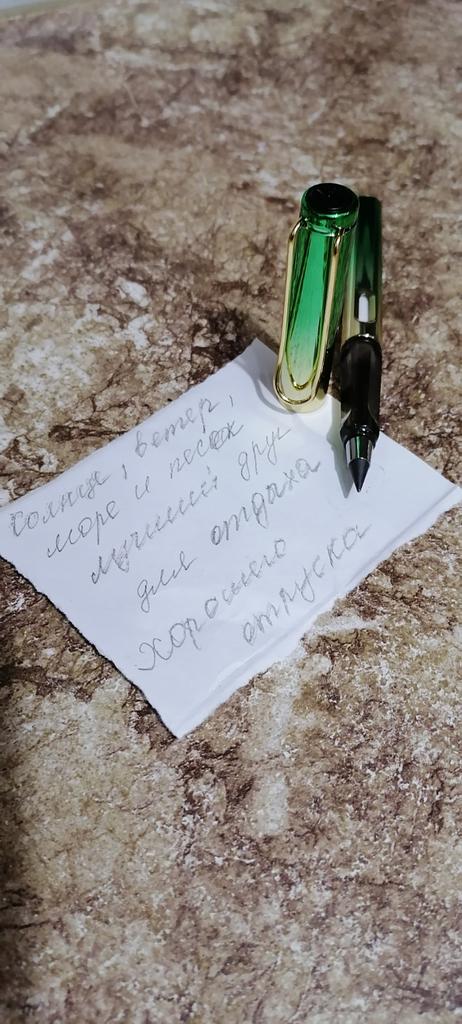 Солнце, ветер,
море и песок
лучший друг
для отдыха
Хорошего
отпуска